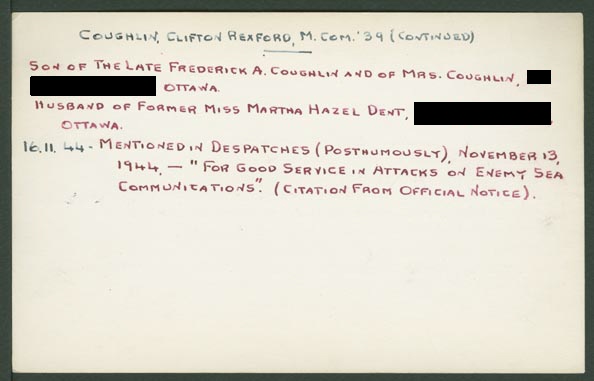 COUGHLIN, CLIFTON REXFORD, M. COM. '39 (CONTINUED)
SON OF THE LATE FREDERICK A. COUGHLIN AND OF MRS. COUGHLIN,
OTTAWA.
HUSBAND OF FORMER MISS MARTHA HAZEL DENT,
OTTAWA.
16.11.44 - MENTIONED IN DESPATCHES (POSTHUMOUSLY), NOVEMBER 13,
1944, — "FOR GOOD SERVICE IN ATTACKS ON ENEMY SEA
COMMUNICATIONS". (CITATION FROM OFFICIAL NOTICE).